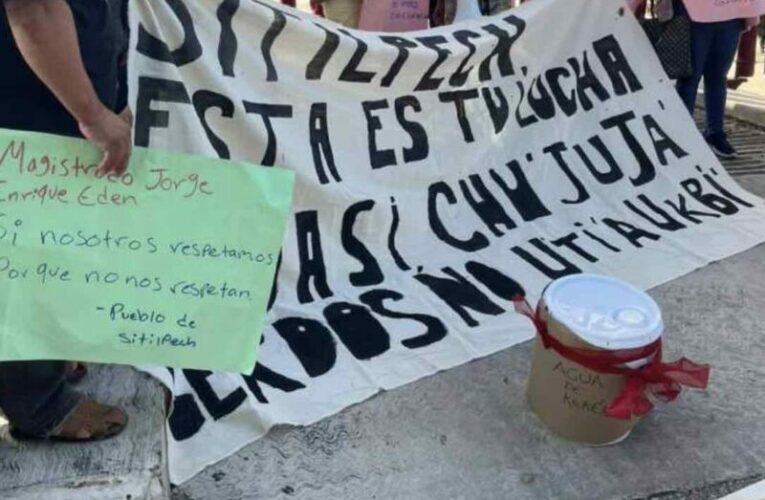 SITILPECH,
ESTA ES TU LUCHA
ASÍ CHU'JUJÁ
CERDOS ¡NO
Magistrado Jorge
Enrique Eden
Si nosotros respetamos
Por que no nos respetan.
- Pueblo de
Sitilpech
AGUA
DE